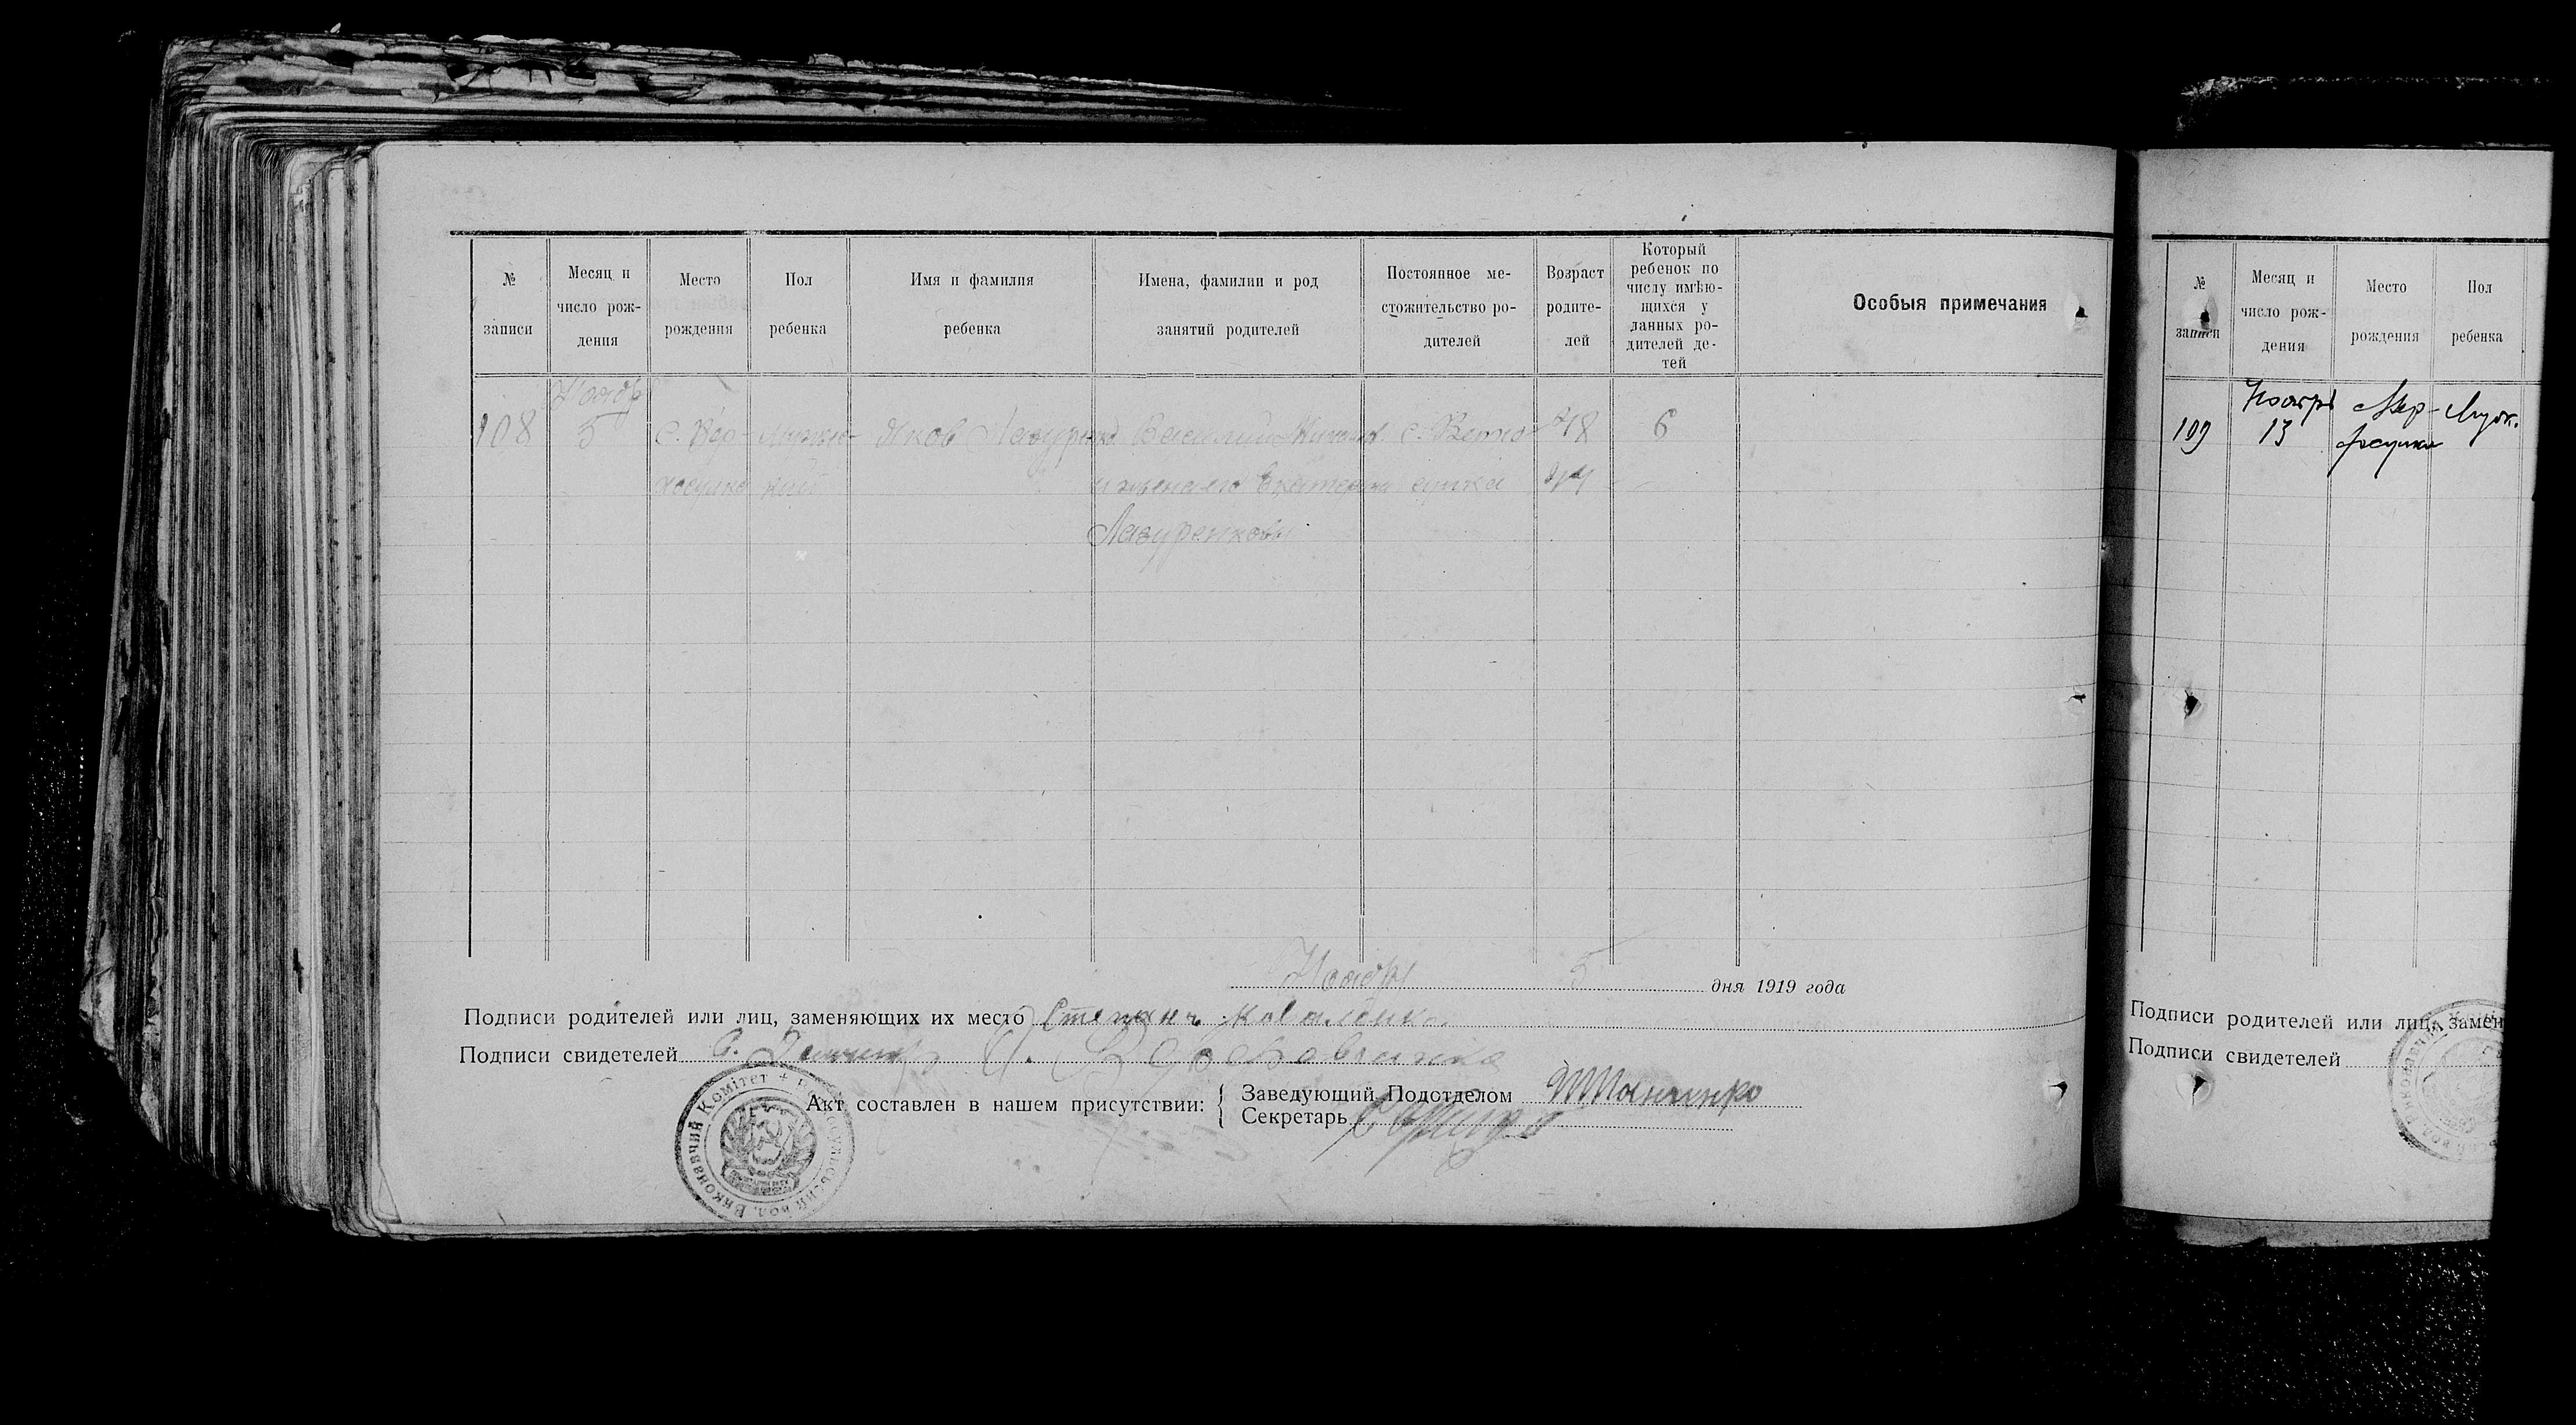 № записи
Месяц и число рождения
Место рождения
Пол ребенка
Имя и фамилия ребенка
Имена, фамилии и род занятий родителей
Постоянное местожительство родителей
Возраст родителей
Который ребенок по числу имѣющихся у данных родителей детей
Особыя примечания
Ноября
108 5 с. Вер- Мужес- Яков Лазуренко Василий с. Верхо- 48 6
хосулка кий и жена его Екатерина сулка 44
Лазуренковы
Ноября 5 дня 1919 года
Подписи родителей или лиц, заменяющих их место Степанъ Коваленко
Подписи свидетелей
Акт составлен в нашем присутствии:
Заведующий Подотделом
Секретарь
Виконавчий Комітет +
№ записи
Месяц и число рождения
Место рождения
Пол ребенка
Ноября
109 13 Вер- Муж.
хосулка
Подписи родителей или лиц, замен
Подписи свидетелей